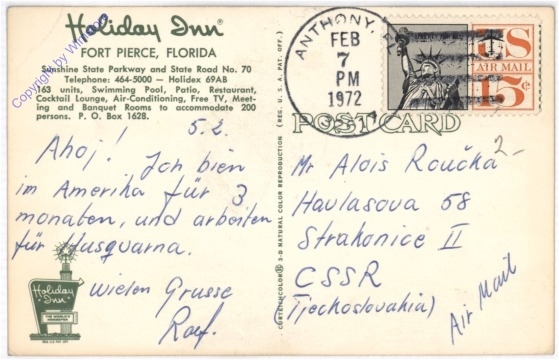 Holiday Inn®
FORT PIERCE, FLORIDA
Sunshine State Parkway and State Road No. 70
Telephone: 464-5000 — Holidex 69AB
163 units, Swimming Pool, Patio, Restaurant,
Cocktail Lounge, Air-Conditioning, Free TV, Meet-
ing and Banquet Rooms to accommodate 200
persons. P. O. Box 1628.
5.2.
Ahoj! Ich bien
im Amerika für 3
monaten, und arbeiten
für Husqvarna.
wielen Grusse
Rolf.
Holiday
Inn
THE WORLD'S
INNKEEPER
(REG. U.S.A. PAT. OFF.)
CURTEICHCOLOR® 3-D NATURAL COLOR REPRODUCTION
ANTHONY, FL
FEB
7
PM
1972
US
AIR MAIL
15¢
POST CARD
2-
Mr Alois Roučka
Havlasova 58
Strakonice II
CSSR
(Tjechoslovakia)
Air Mail
Copyright by